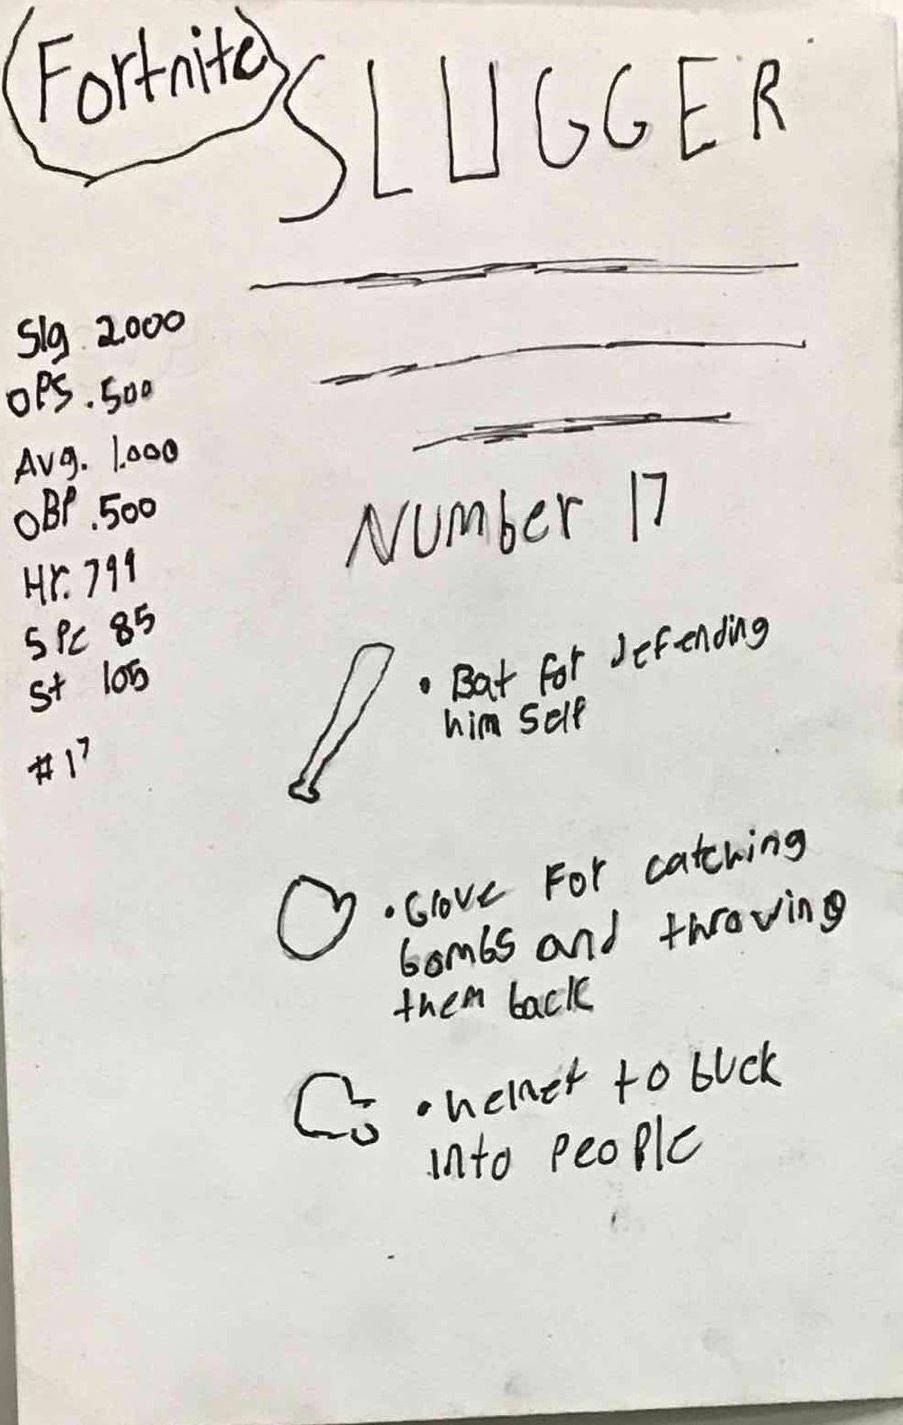 Fortnite
SLUGGER
Slg 2.000
OPS .500
Avg. 1.000
OBP .500
Hr. 799
SPC 85
St 105
#17
Number 17
• Bat for defending
him self
• Glove For catching
bombs and throwing
them back
• helmet to buck
into people